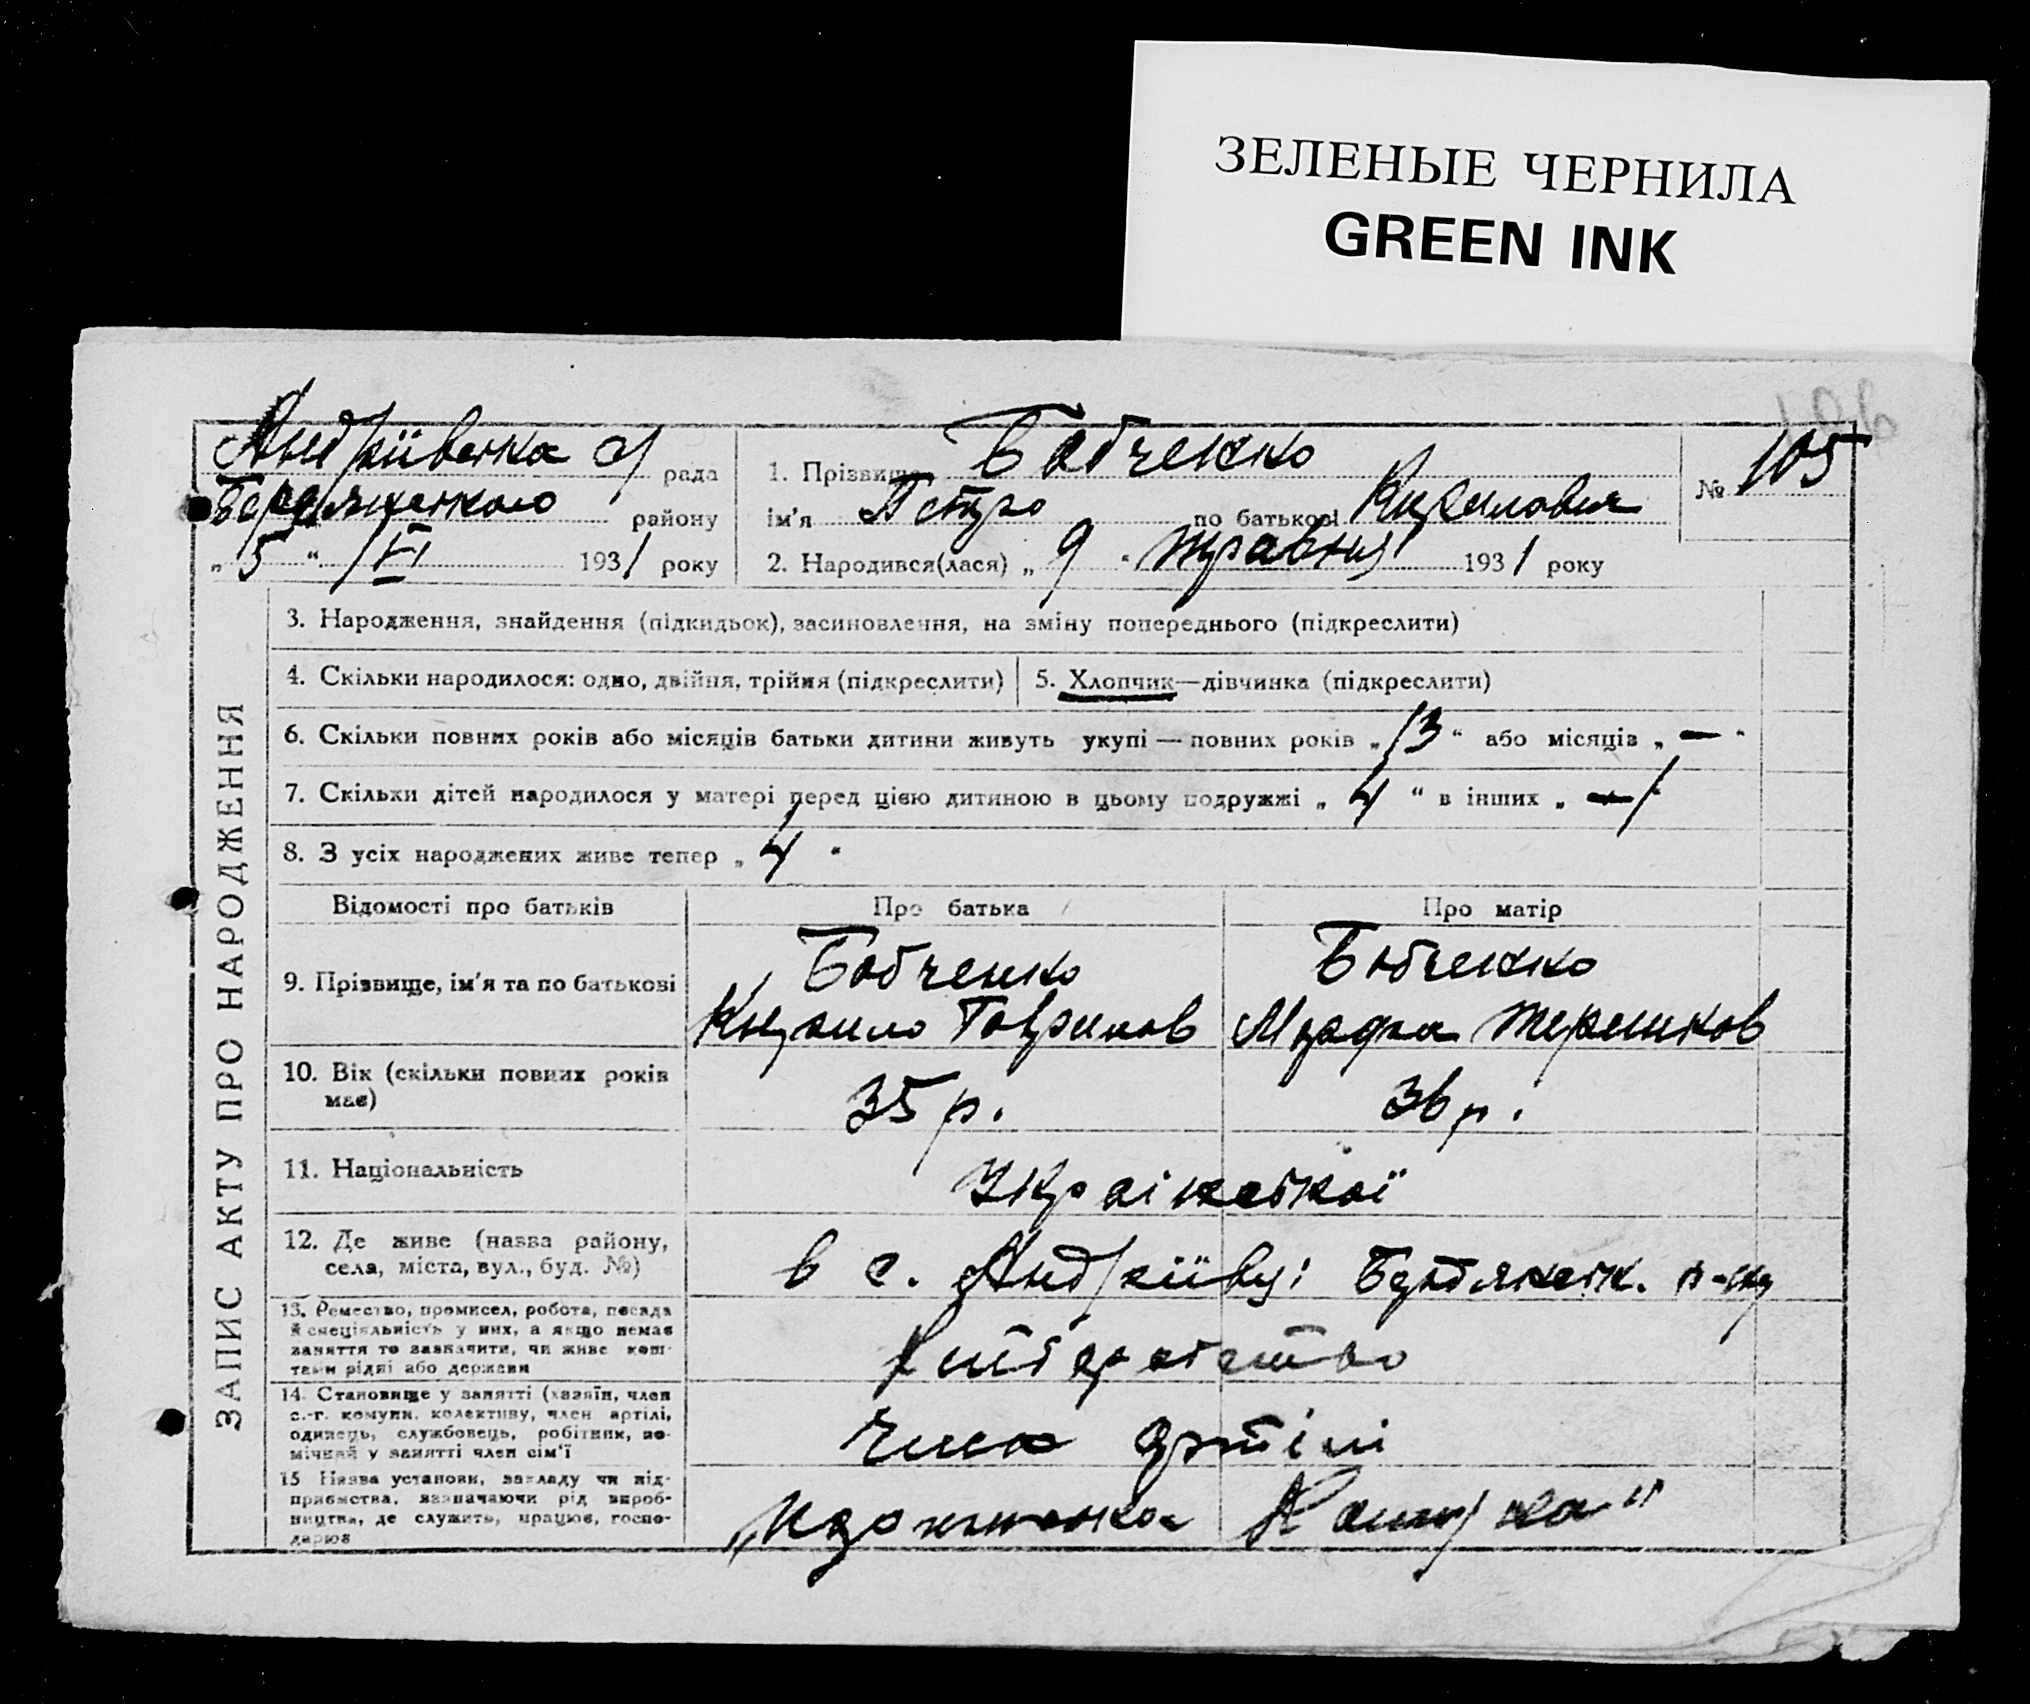 ЗЕЛЕНЫЕ ЧЕРНИЛА
GREEN INK
Андріївська с/ рада
району
„ 5 “ VI 1931 року
1. Прізвище Бабченко
ім'я Петро по батькові Кирилович
2. Народився(лася) „ 9 “ травня 1931 року
№ 105
ЗАПИС АКТУ ПРО НАРОДЖЕННЯ
3. Народження, знайдення (підкидьок), засиновлення, на зміну попереднього (підкреслити)
4. Скільки народилося: одно, двійня, трійня (підкреслити)
5. Хлопчик—дівчинка (підкреслити)
6. Скільки повних років або місяців батьки дитини живуть укупі — повних років „ 13 “ або місяців „ — “
7. Скільки дітей народилося у матері перед цією дитиною в цьому подружжі „ 4 “ в інших „ — “
8. З усіх народжених живе тепер „ 4 “
Відомості про батьків Про батька Про матір
9. Прізвище, ім'я та по батькові
Бабченко
Кирило Гаврилов
Бабченко
10. Вік (скільки повних років
має)
35 р.
36 р.
11. Національність
Української
12. Де живе (назва району,
села, міста, вул., буд. №)
в с. Андріївці р-ну
13. Ремество, промисел, робота, посада
й спеціяльність у них, а якщо немає
заняття то зазначити, чи живе кош-
тами рідні або держави
Хліборобство
14. Становище у занятті (хазяїн, член
с.-г. комуни, колективу, член артілі,
одинець, службовець, робітник, по-
мічний у занятті член сім'ї
Член артілі
15 Назва установи, закладу чи під-
приємства, зазначаючи рід вироб-
ництва, де служить, працює, госпо-
дарює